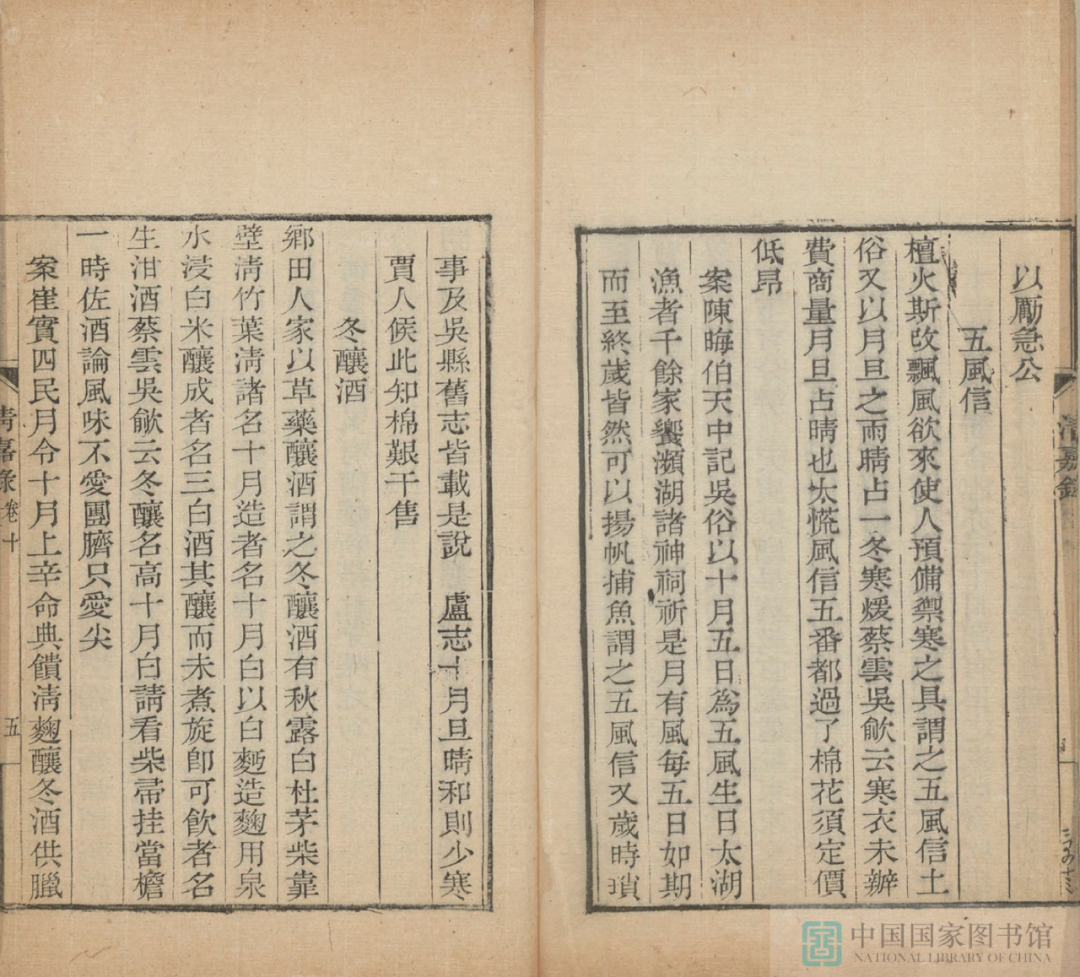 清嘉錄
以勵急公
五風信
檀火斯改飄風欲來使人預備禦寒之具謂之五風信土
俗又以月旦之雨晴占一冬寒煖蔡雲吳歈云寒衣未辦
費商量月旦占晴也太慌風信五番都過了棉花須定價
低昂
案陳晦伯天中記吳俗以十月五日為五風生日太湖
漁者千餘家饗瀕湖諸神祠祈是月有風每五日如期
而至終歲皆然可以揚帆捕魚謂之五風信又歲時瑣
事及吳縣舊志皆載是說 盧志十月旦晴和則少寒
賈人候此知棉艱于售
冬釀酒
鄉田人家以草藥釀酒謂之冬釀酒有秋露白杜茅柴靠
壁清竹葉清諸名十月造者名十月白以白麪造麴用泉
水浸白米釀成者名三白酒其釀而未煮旋即可飲者名
生泔酒蔡雲吳歈云冬釀名高十月白請看柴帚挂當檐
一時佐酒論風味不愛團臍只愛尖
案崔寔四民月令十月上辛命典饋淸麴釀冬酒供臘
青嘉录 卷十
五
中国国家图书馆
NATIONAL LIBRARY OF CHINA